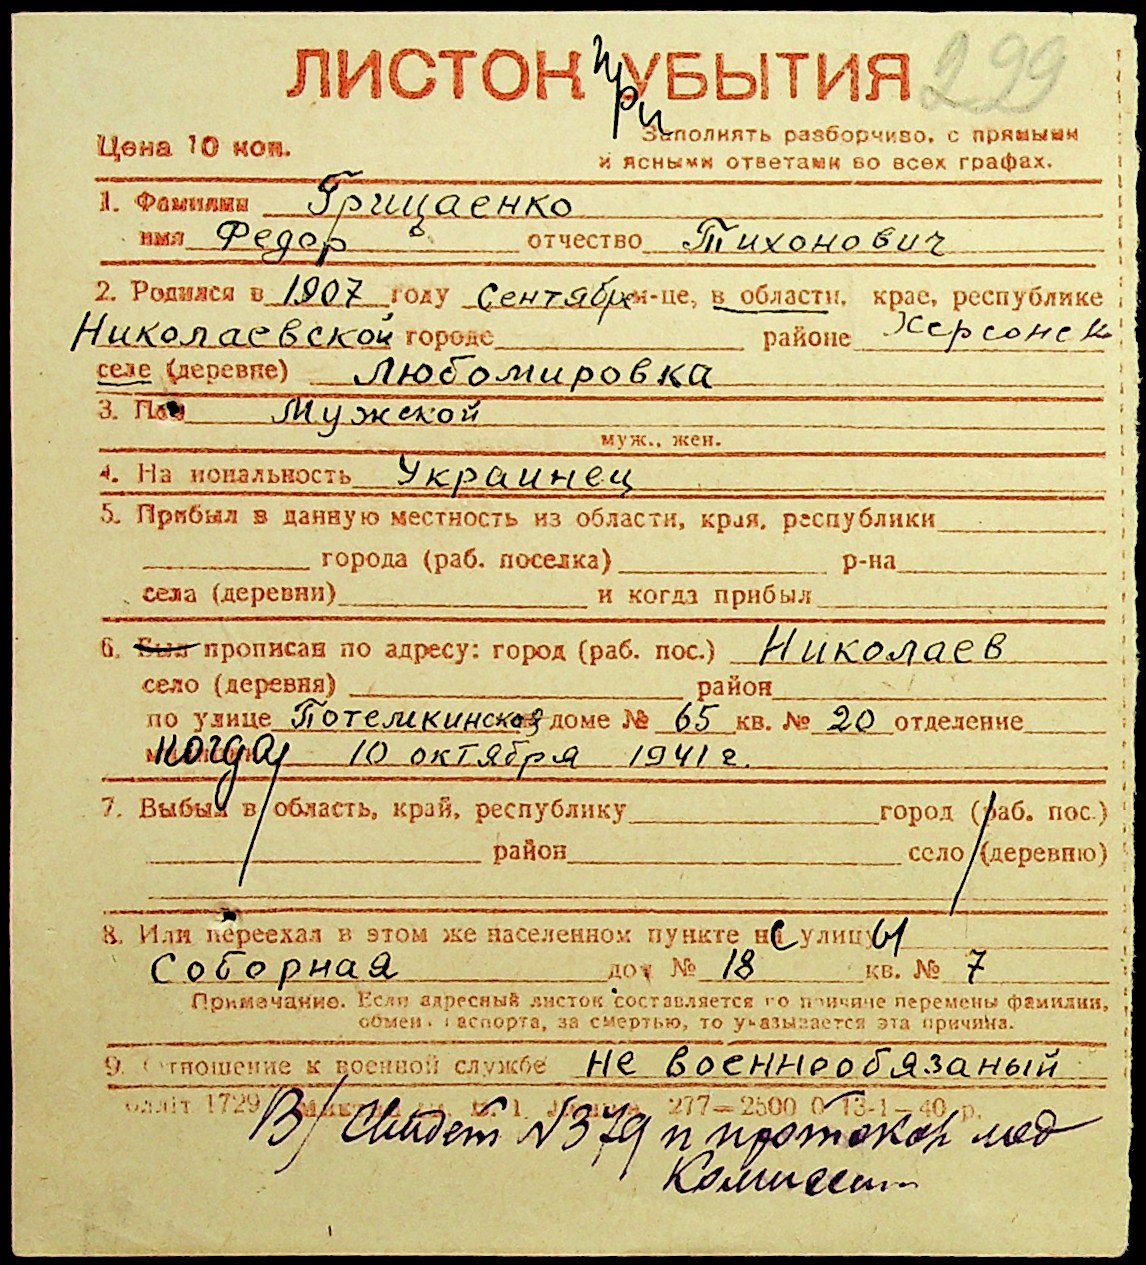 ЛИСТОК УБЫТИЯ 299
при
Цена 10 коп.
Заполнять разборчиво, с прямыми
и ясными ответами во всех графах.
1. Фамилия Грицаенко
имя Федор отчество Тихонович
2. Родился в 1907 году Сентябре м-це, в области, крае, республике
Николаевской городе районе Херсонск
селе (деревне) Любомировка
3. Пол Мужской
муж., жен.
4. Национальность Украинец
5. Прибыл в данную местность из области, края, республики
города (раб. поселка) р-на
села (деревни) и когда прибыл
6. Был прописан по адресу: город (раб. пос.) Николаев
село (деревня) район
по улице Потемкинская доме № 65 кв. № 20 отделение
когда 10 октября 1941 г.
7. Выбыл в область, край, республику город (раб. пос.)
район село (деревню)
8. Или переехал в этом же населенном пункте на с улицу ы
Соборная дом № 18 кв. № 7
Примечание. Если адресный листок составляется по причине перемены фамилии,
обмена паспорта, за смертью, то указывается эта причина.
9. Отношение к военной службе не военнообязаный
олліт 1729 277—2500 0 13-1—40 р.
В/ Свидет N 379 и протокол мед
Комиссии